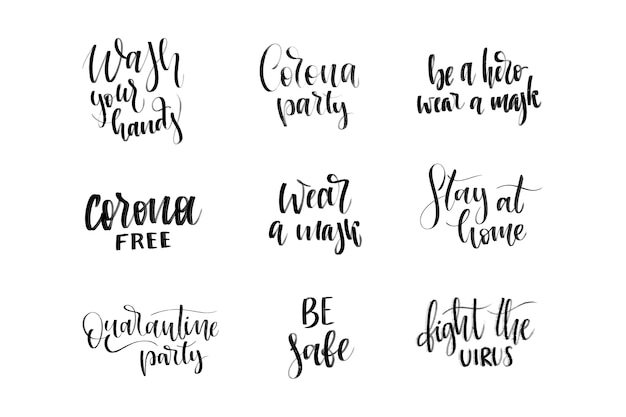 Wash
your
hands
Corona
party
be a hero
wear a mask
corona
FREE
Wear
a mask
Stay at
home
Quarantine
party
BE
safe
fight the
VIRUS